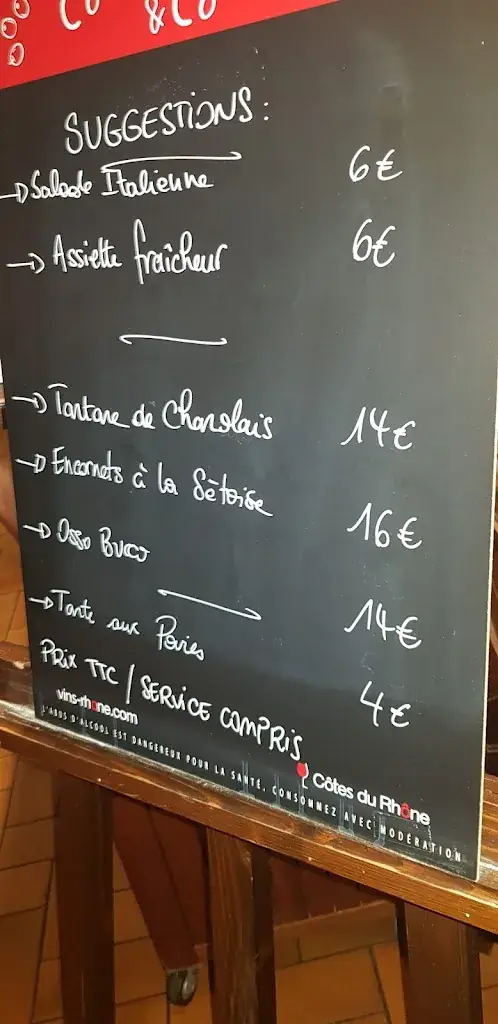 &CO
SUGGESTIONS:
Salade Italienne 6€
Assiette fraîcheur 6€
Tartare de Charolais 14€
Encornets à la Sétoise 16€
Osso Buco 14€
Tarte aux Poires 4€
PRIX TTC / SERVICE COMPRIS
vins-rhone.com
Côtes du Rhône
L'ABUS D'ALCOOL EST DANGEREUX POUR LA SANTÉ, CONSOMMEZ AVEC MODÉRATION